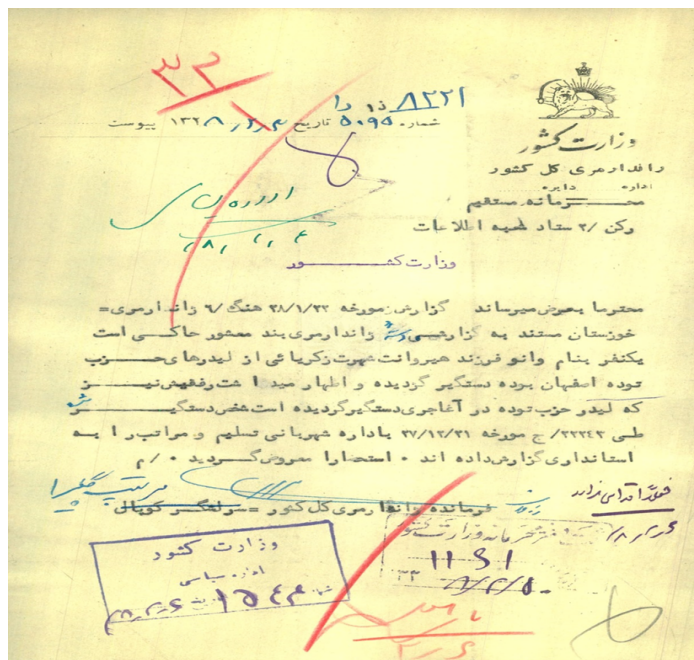 ۳۲
۸۲۲۱
شماره ۵۰۹۵ تاریخ ۱۳۲۸/۲/۴ پیوست
وزارت کشور
ژاندارمری کل کشور
اداره دایره
محرمانه مستقیم
رکن /۲ ستاد شعبه اطلاعات
اداره سیاسی
وزارت کشور
محترما بعرض میرساند گزارش مورخه ۲۸/۱/۲۲ هنگ /۶ ژاندارمری =
خوزستان مستند به گزارش دسته ژاندارمری بندر معشور حاکی است
یکنفر بنام وانو فرزند هیروانت شهرت زکریائی از لیدرهای حزب
توده اصفهان بوده دستگیر گردیده و اظهار میداشت رفقیش نیز
که لیدر حزب توده در آغاجری دستگیر گردیده است شخص دستگیر شده
طی ۲۲۲۴۳/ ج مورخه ۲۷/۱۲/۲۱ باداره شهربانی تسلیم و مراتب را به
استانداری گزارش داده اند ٠ استحضارا معروض گردید ٠ /م
فعلا اقدامی ندارد
فرمانده ژاندارمری کل کشور = سرلشگر کوپال
سرتیپ گیلانشاه
دفتر محرمانه وزارت کشور
۱۱۳۱
وزارت کشور
اداره سیاسی
۱۵۴۴